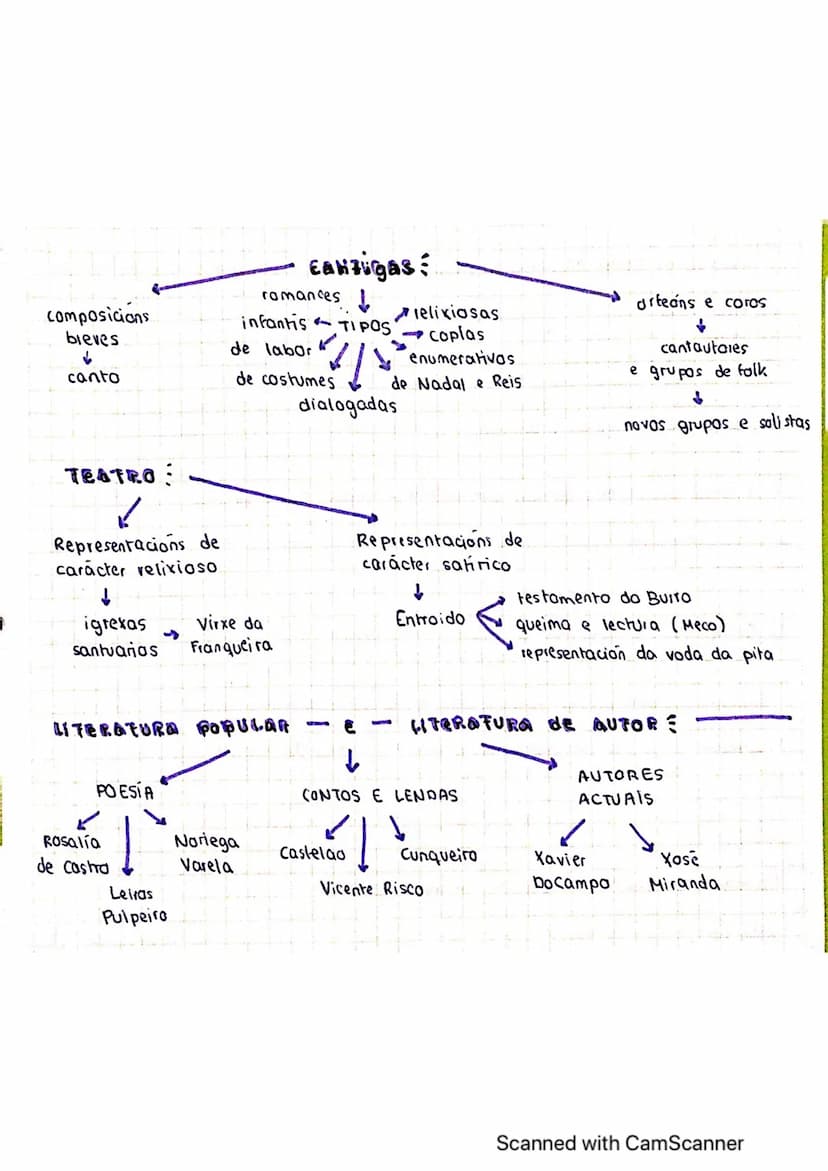 CANTIGAS:
composicións
breves
canto
romances
infantís
TIPOS
relixiosas
coplas
de labor
enumerativas
de costumes
de Nadal e Reis
dialogadas
orfeóns e coros
cantautores
e grupos de folk
novos grupos e solistas
TEATRO:
Representacións de
carácter relixioso
igrexas
santuarios
Virxe da
Franqueira
Representacións de
carácter satírico
Entroido
testamento do Burro
queima e lectura (Meco)
representación da voda da pita
LITERATURA POPULAR - E - LITERATURA DE AUTOR:
POESÍA
Rosalía
de Castro
Leiras
Pulpeiro
Noriega
Varela
CONTOS E LENDAS
Castelao
Vicente Risco
Cunqueiro
AUTORES
ACTUAIS
Xavier
DoCampo
Xosé
Miranda
Scanned with CamScanner